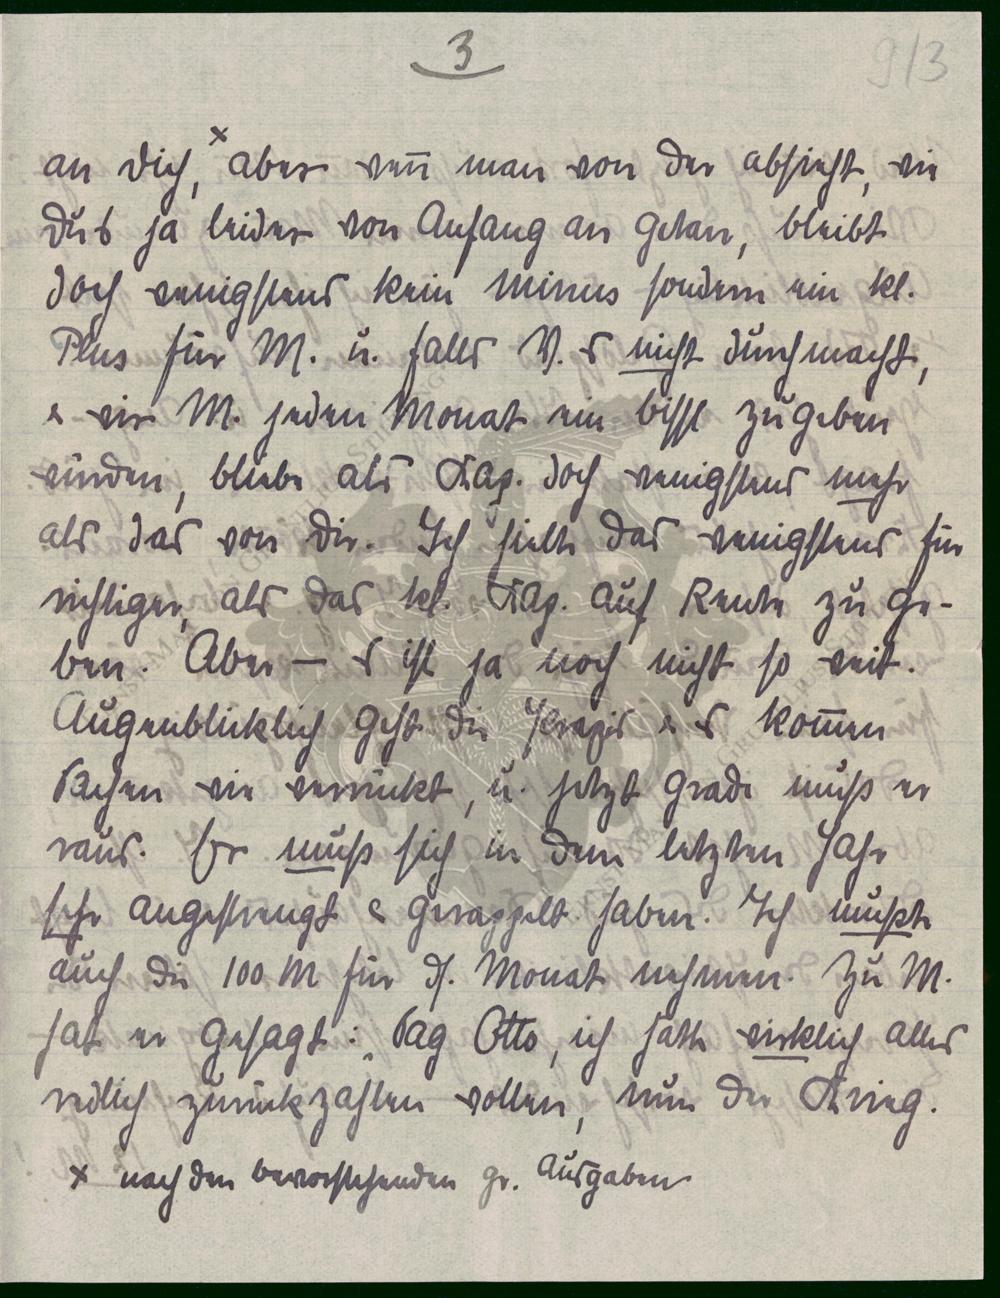 3
9/3
an dich,ˣ aber wen̅ man von der absieht, wie
Du's ja leider von Anfang an getan, bleibt
doch wenigstens kein Minus sondern ein kl.
Plus für M. u. falls V. es nicht durchmacht,
& wir M. jeden Monat ein bissl zugeben
würden, bliebe als Kap. doch wenigstens mehr
als das von dir. Ich hielte das wenigstens für
richtiger, als das kl. Kap. auf Rente zu ge-
ben. Aber — es ist ja noch nicht so weit.
Augenblicklich geht die Praxis & es kom̅en
Sachen wie verrückt, u. jetzt grade muß er
raus. Er muß sich in dem letzten Jahr
sehr angestrengt & gerappelt haben. Ich mußte
auch die 100 M für ds. Monat nehmen. Zu M.
hat er gesagt: „Sag Otto, ich hätte wirklich alles
redlich zurückzahlen wollen, nun der Krieg.
x nach den bevorstehenden gr. Ausgaben